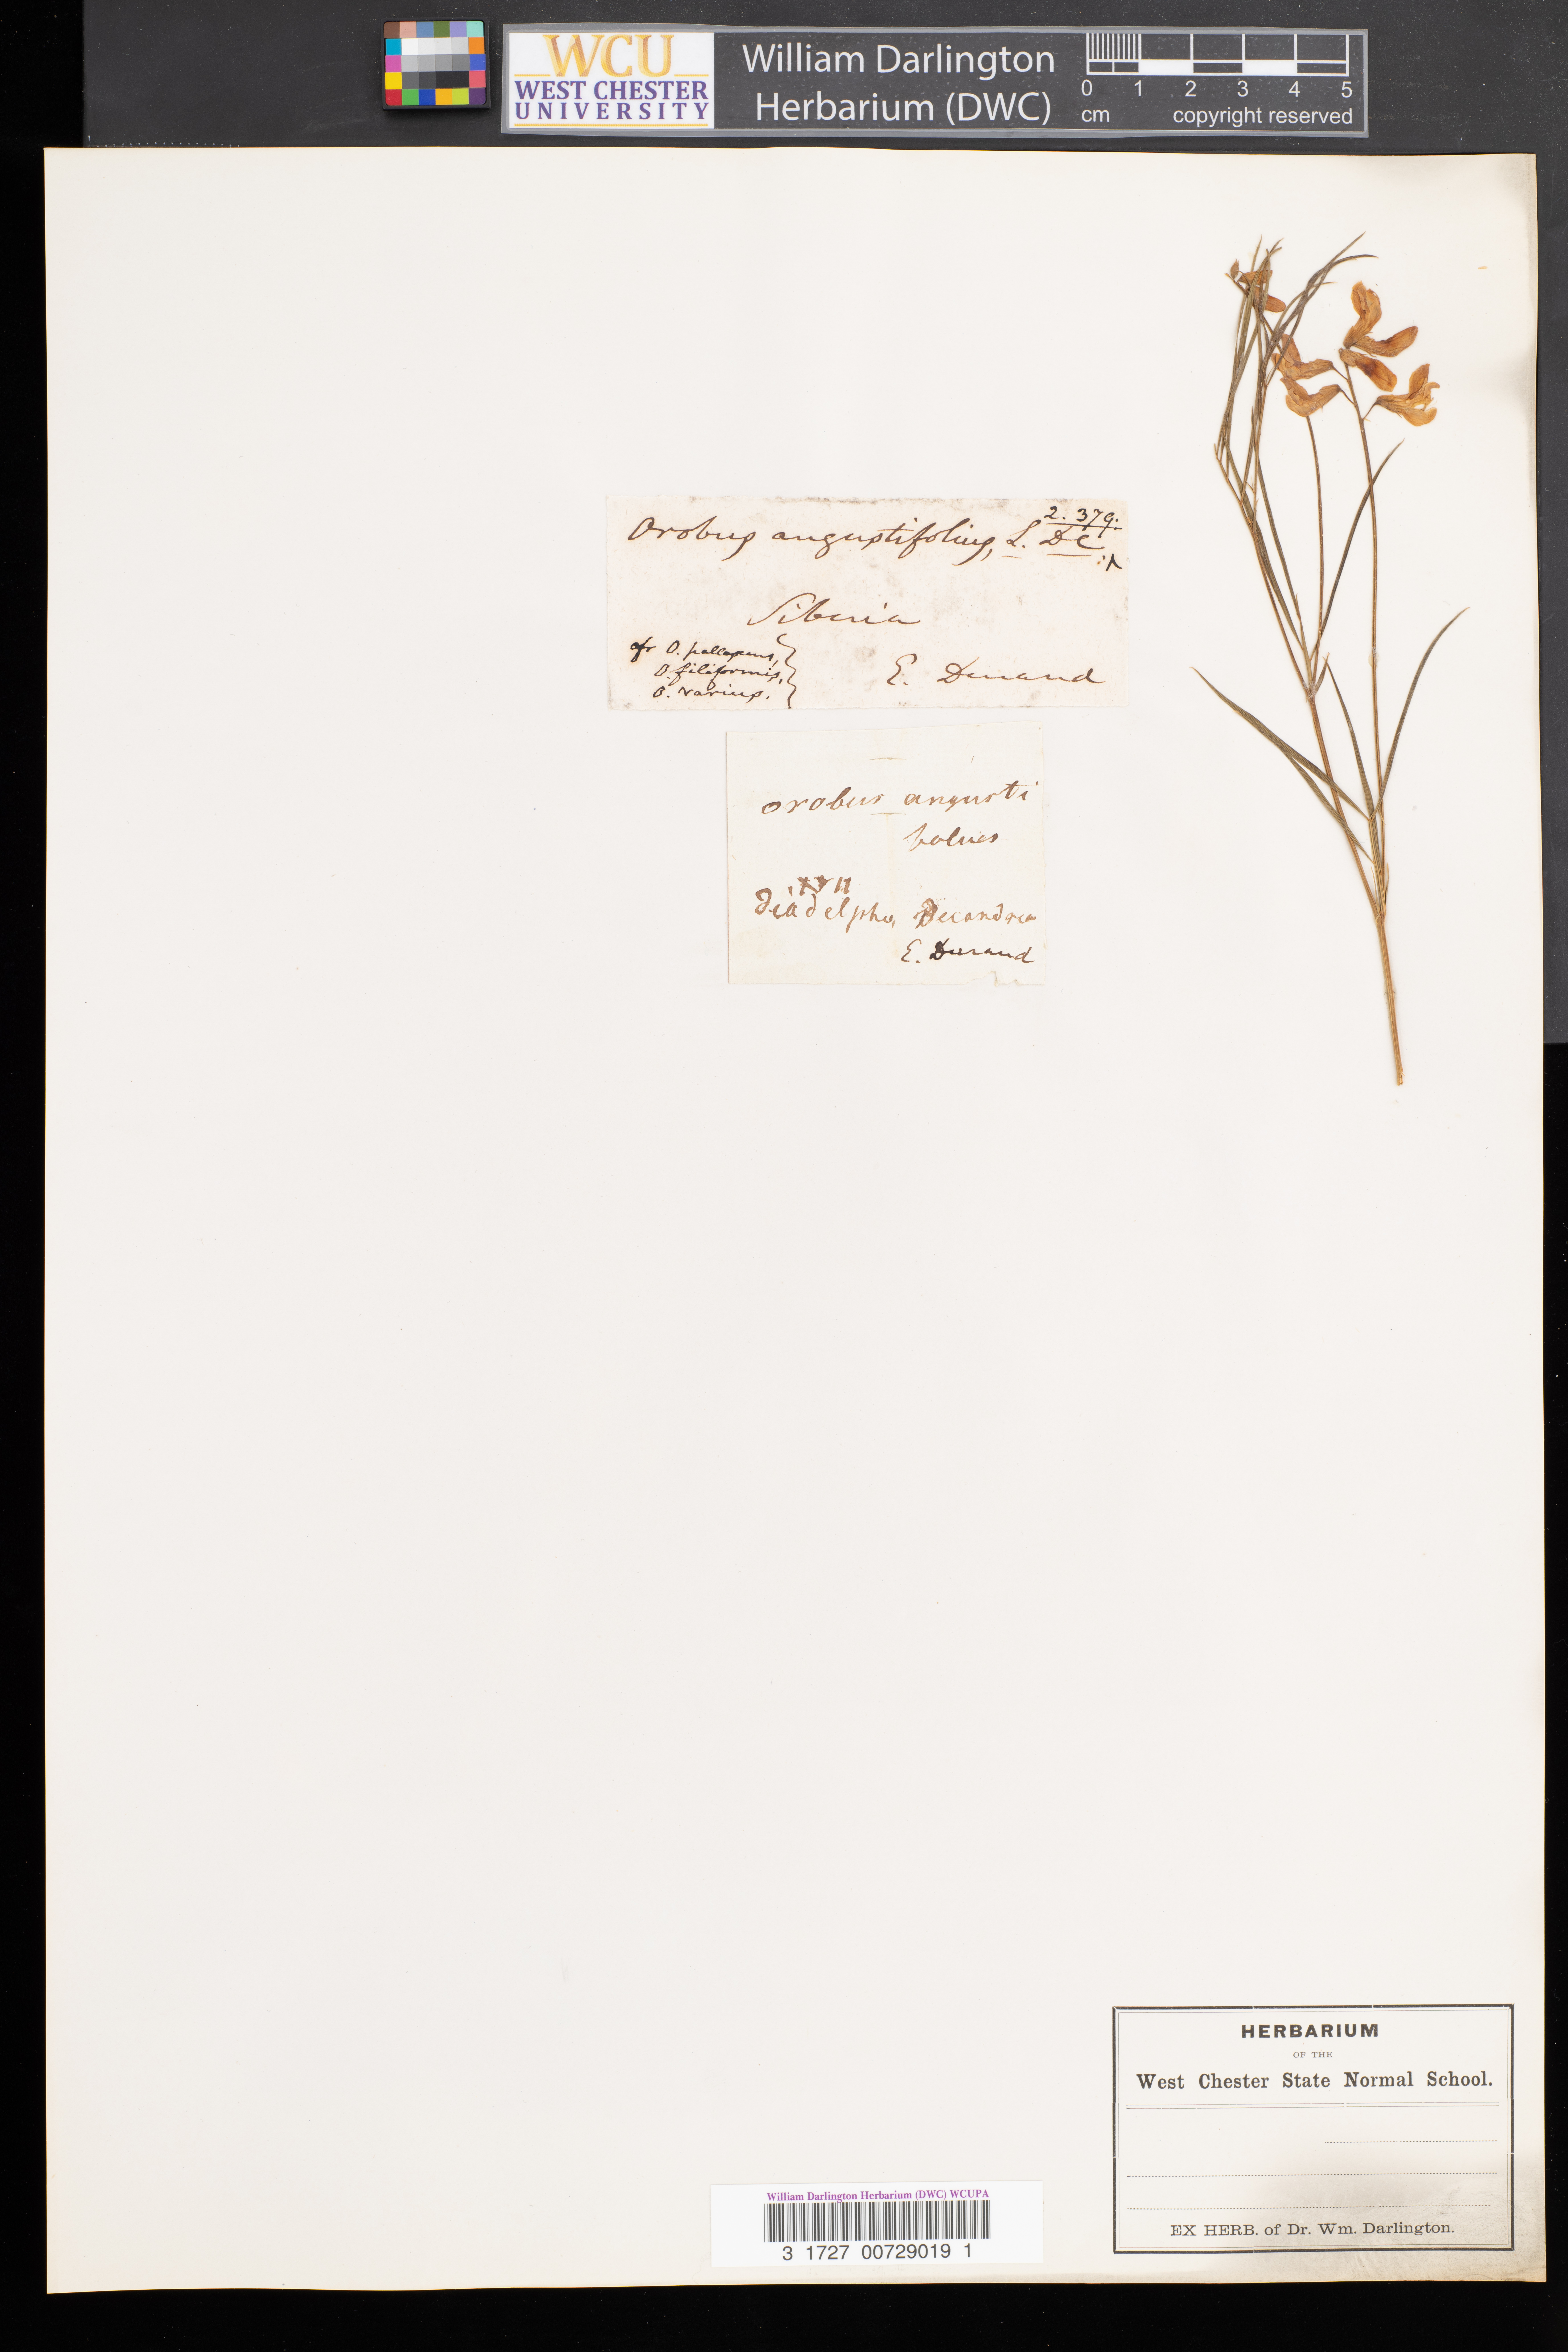 WCU
WEST CHESTER
UNIVERSITY
William Darlington
Herbarium (DWC)
0 1 2 3 4 5
cm copyright reserved
2. 379.
Orobus angustifolius, L. DC
Siberia
O. pallescens,
O. filiformis,
O. varius.
E. Durand
orobus angusti
folius
diadelphia Decandria
E. Durand
HERBARIUM
OF THE
West Chester State Normal School.
EX HERB. of Dr. Wm. Darlington.
William Darlington Herbarium (DWC) WCUPA
3 1727 00729019 1